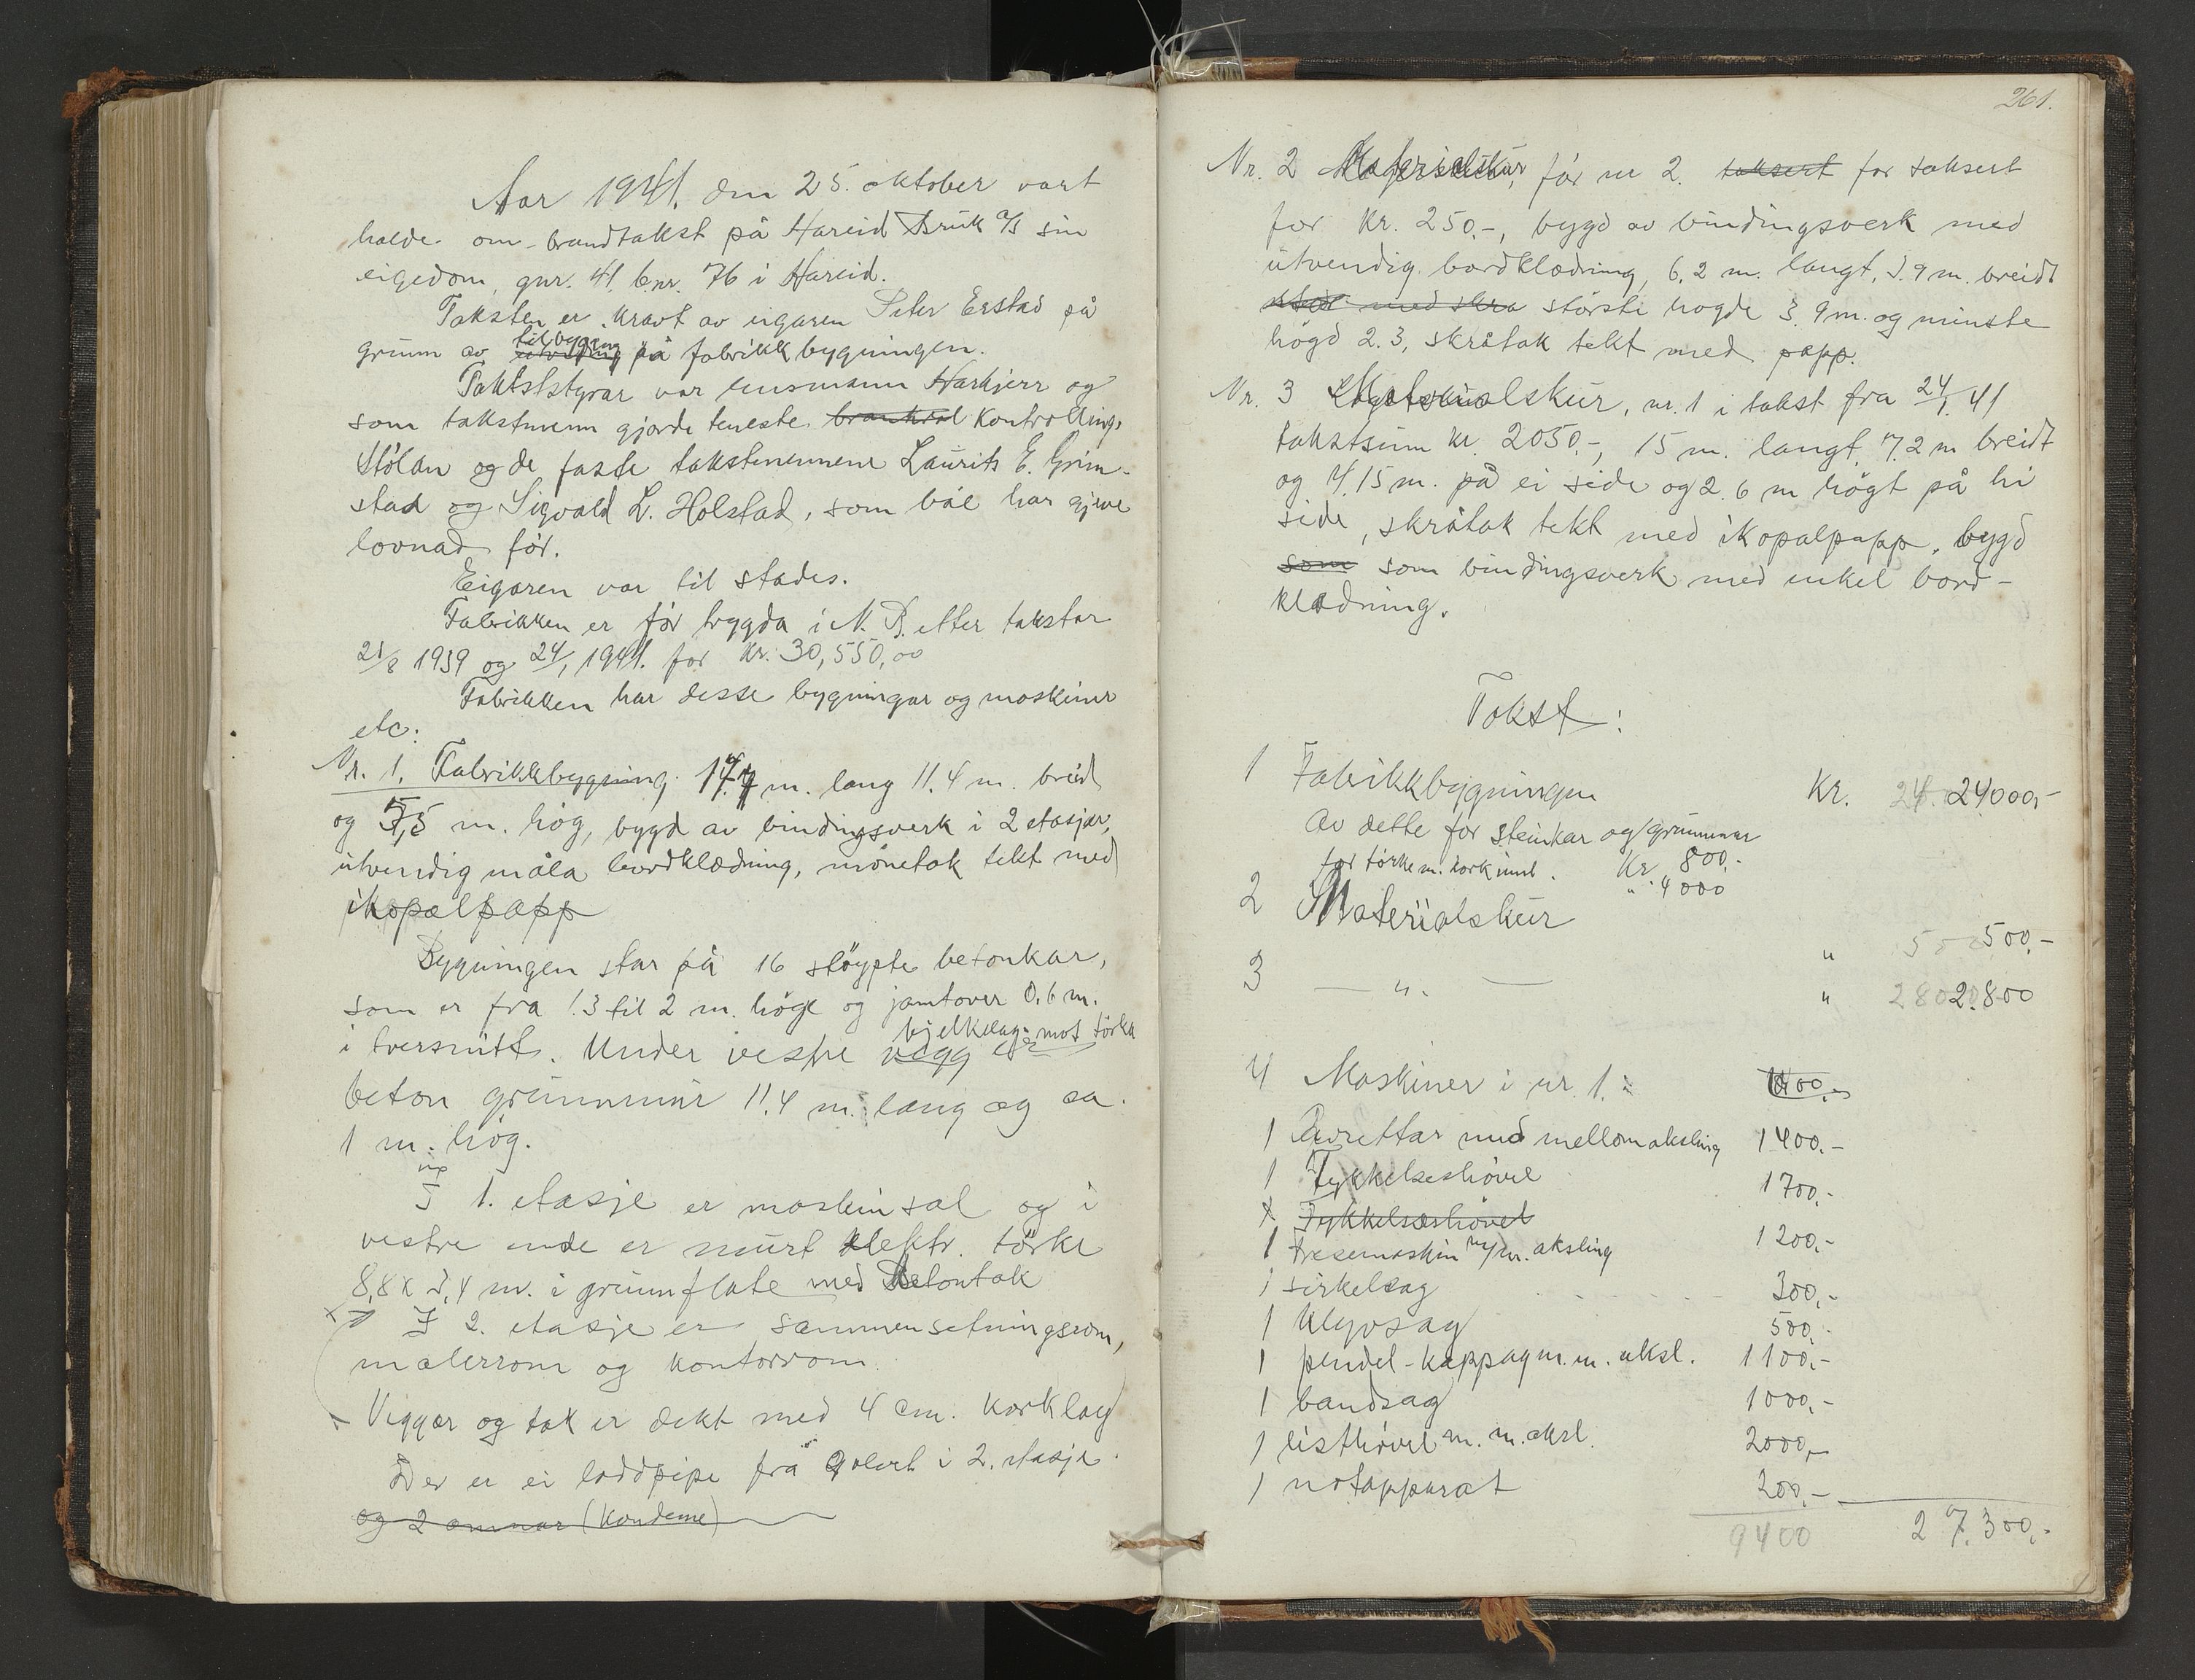 Aar 1941. den 25. oktober vart
halde om-brandtakst på Hareid Bruk A/S sin
eigedom, gnr. 41. b.nr. 76 i Hareid.
Taksten er kravt av eigaren Peter Erstad på
grunn av utviding tilbygging på fabrikkbygningen.
Takststyrar var lensmann Harkjerr og
som takstmenn gjorde teneste kontrolling.
Stölan og de faste takstmennene Laurits E. Grim-
stad og Sigvald L. Holstad, som båe har gjeve
lovnad før.
Eigaren var til stades.
Fabrikken er før trygda i N. B. etter takstar
21/8 1939 og 24/1 1941. for kr. 30,550,00
Fabrikken har desse bygningar og maskiner
etc:
Nr. 1. Fabrikkbygning. m. lang 11.4 m. breid
og 5,5 m. høg, bygd av bindingsverk i 2 etasjer,
utvendig måla bordklædning, mønetak tekt med
ikopalpapp
Bygningen står på 16 støypte betonkar,
som er fra 1.3 til 2 m. høge og jamtover 0.6 m.
i tversnitt. Under vestre vegg bjelkelag mot tørka er
beton grunnmur 11.4 m. lang og ca.
1 m. høg.
I 1. etasje er maskinsal og i
vestre ende er murt elektr. tørke
8,8 x 3,4 m. i grunnflate med betontak
I 2. etasje er sammensetningsrom,
malerrom og kontorrom.
Veggar og tak er dekt med 4 cm. korklag
Der er ei loddpipe frå golvet i 2. etasje.
og 2 omnar (kondemne)
261.
Nr. 2 Materialskur, før nr 2. taksert for taksert
for kr. 250.-, bygd av bindingsverk med
utvendig bordklædning, 6,2 m. langt, 3.9 m. breidt
med skrå største høgde 3.9 m. og minste
høgd 2.3, skråtak tekt med papp.
Nr. 3 Materialskur, nr. 1 i takst fra 24/1. 41
takstsum kr. 2050.-, 15 m. langt, 7.2 m breidt
og 4.15 m. på ei side og 2.6 m høgt på hi
side, skråtak tekt med ikopalpapp, bygd
som som bindingsverk med enkel bord-
klædning.
Takst:
1 Fabrikkbygningen Kr. 24000,-
Av dette for steinkar og grunnmur
for tørke m. kork innl. Kr. 800.-
" 4000
2 Materialskur " 500,-
3 — " — " 2.800
4 Maskiner i nr. 1.: 1400.-
1 Avrettar med mellomaksling 1400.-
1 Tykkelseshøvel 1700,-
1 Tykkelseshøvel
1 Fresemaskin m/m. aksling 1200,-
1 sirkelsag 300,-
1 Klyvsag 500,-
1 pendel-kappsag m. m. aksl. 1100,-
1 bandsag 1000,-
1 listhøvel m. m. aksl. 2000,-
1 notapparat 200,-
9400 27.300,-